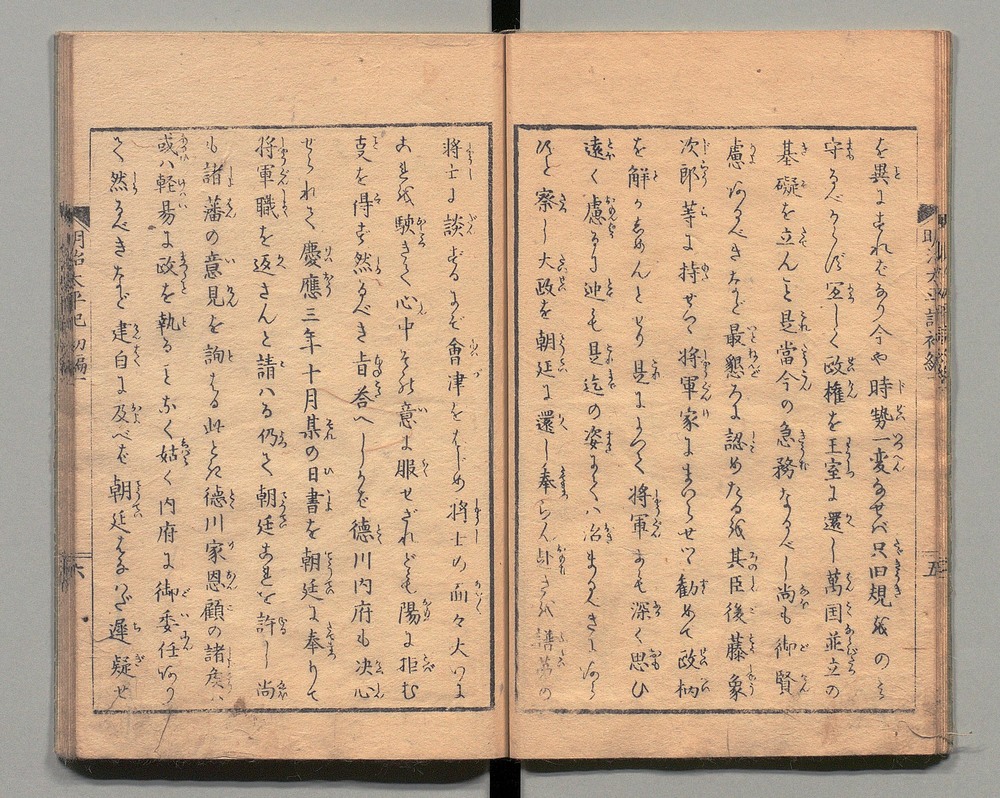 を異にすれバなり今や時勢一変なせバ只旧規をのミ
守るべからず宜しく政権を王室に還し萬国並立の
基礎を立んこと是當今の急務なるべし尚も御賢
慮あるべきなど最懇ろに認めたるを其臣後藤象
次郎等に持せて将軍家にまいらせつ勧めて政柄
を解かしめんとせり是によつて将軍にも深く思ひ
遠く慮るに迚も是迄の姿にてハ治まるまじきに
と察し大政を朝廷に還し奉らん
将士に談ずるにぞ會津をはじめ将士の面々大いに
これを駭きて心中その意に服せざれども陽に拒む
支を得ず然るべき旨答へしかバ德川内府も决心
せられて慶應三年十月某の日書を朝廷に奉りて
将軍職を返さんと請ハる仍て朝廷これを許し尚
も諸藩の意見を詢はる此とき德川家恩顧の諸矦ハ
或ハ軽易に政を執ることなく姑く内府に御委任あり
て然るべきなど建白に及べど朝廷はるかに遲疑せ
明治太平記初編一
五
明治太平記初編一
六